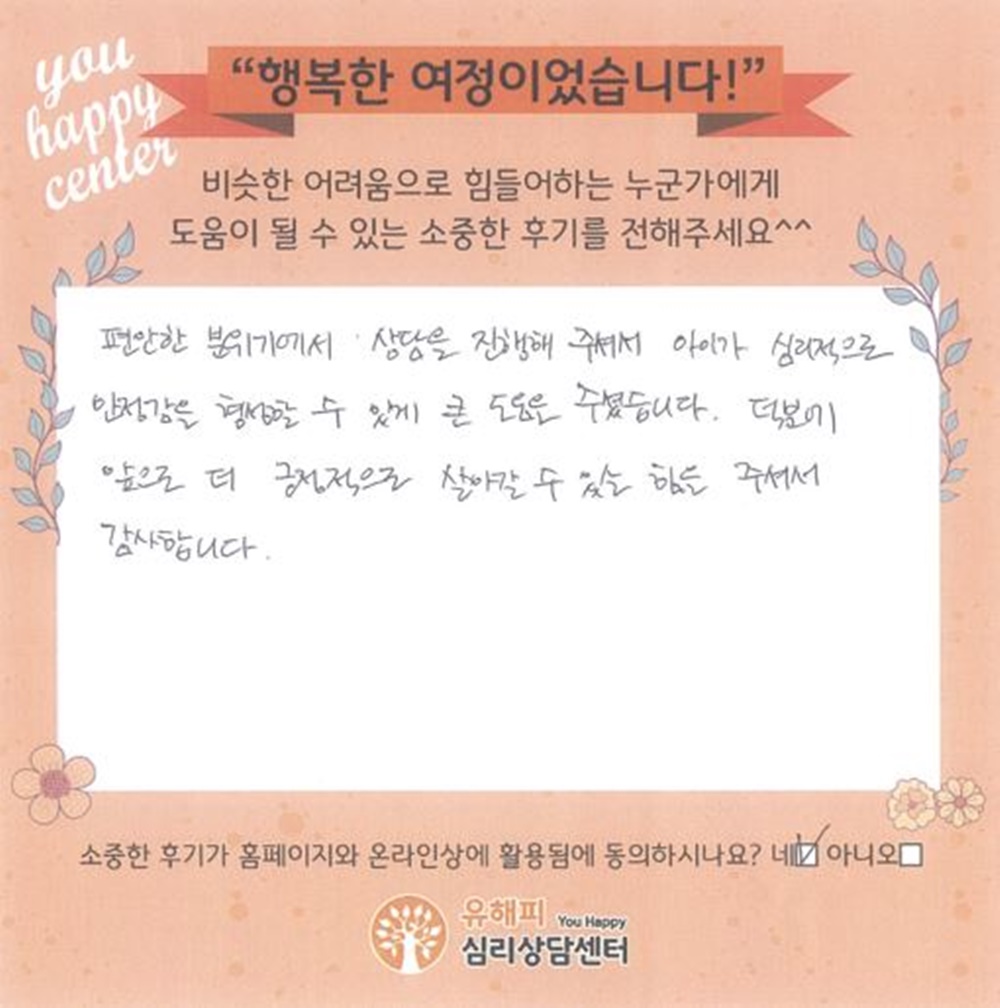 you
happy
center
“행복한 여정이었습니다!”
비슷한 어려움으로 힘들어하는 누군가에게
도움이 될 수 있는 소중한 후기를 전해주세요^^
편안한 분위기에서 상담을 진행해 주셔서 아이가 심리적으로
안정감을 형성할 수 있게 큰 도움을 주셨습니다. 덕분에
앞으로 더 긍정적으로 살아갈 수 있는 힘을 주셔서
감사합니다.
소중한 후기가 홈페이지와 온라인상에 활용됨에 동의하시나요? 네☑ 아니오☐
유해피 You Happy
심리상담센터